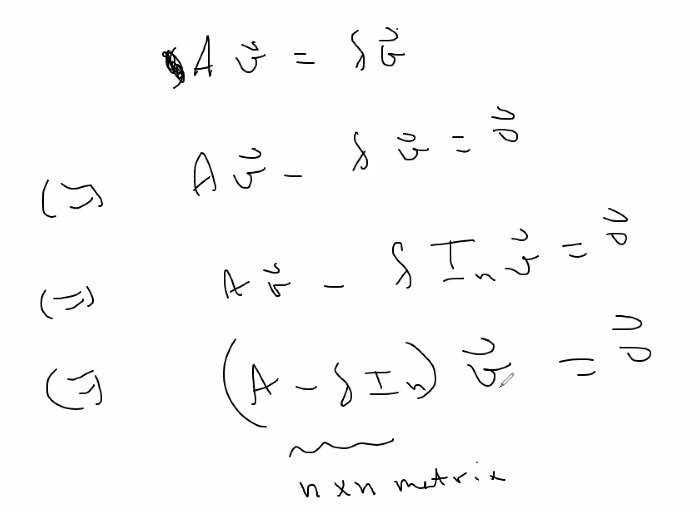 A v⃗ = λ v⃗
(⇒) A v⃗ − λ v⃗ = 0⃗
(⇒) A v⃗ − λ Iₙ v⃗ = 0⃗
(⇒) (A − λ Iₙ) v⃗ = 0⃗
n × n metrix